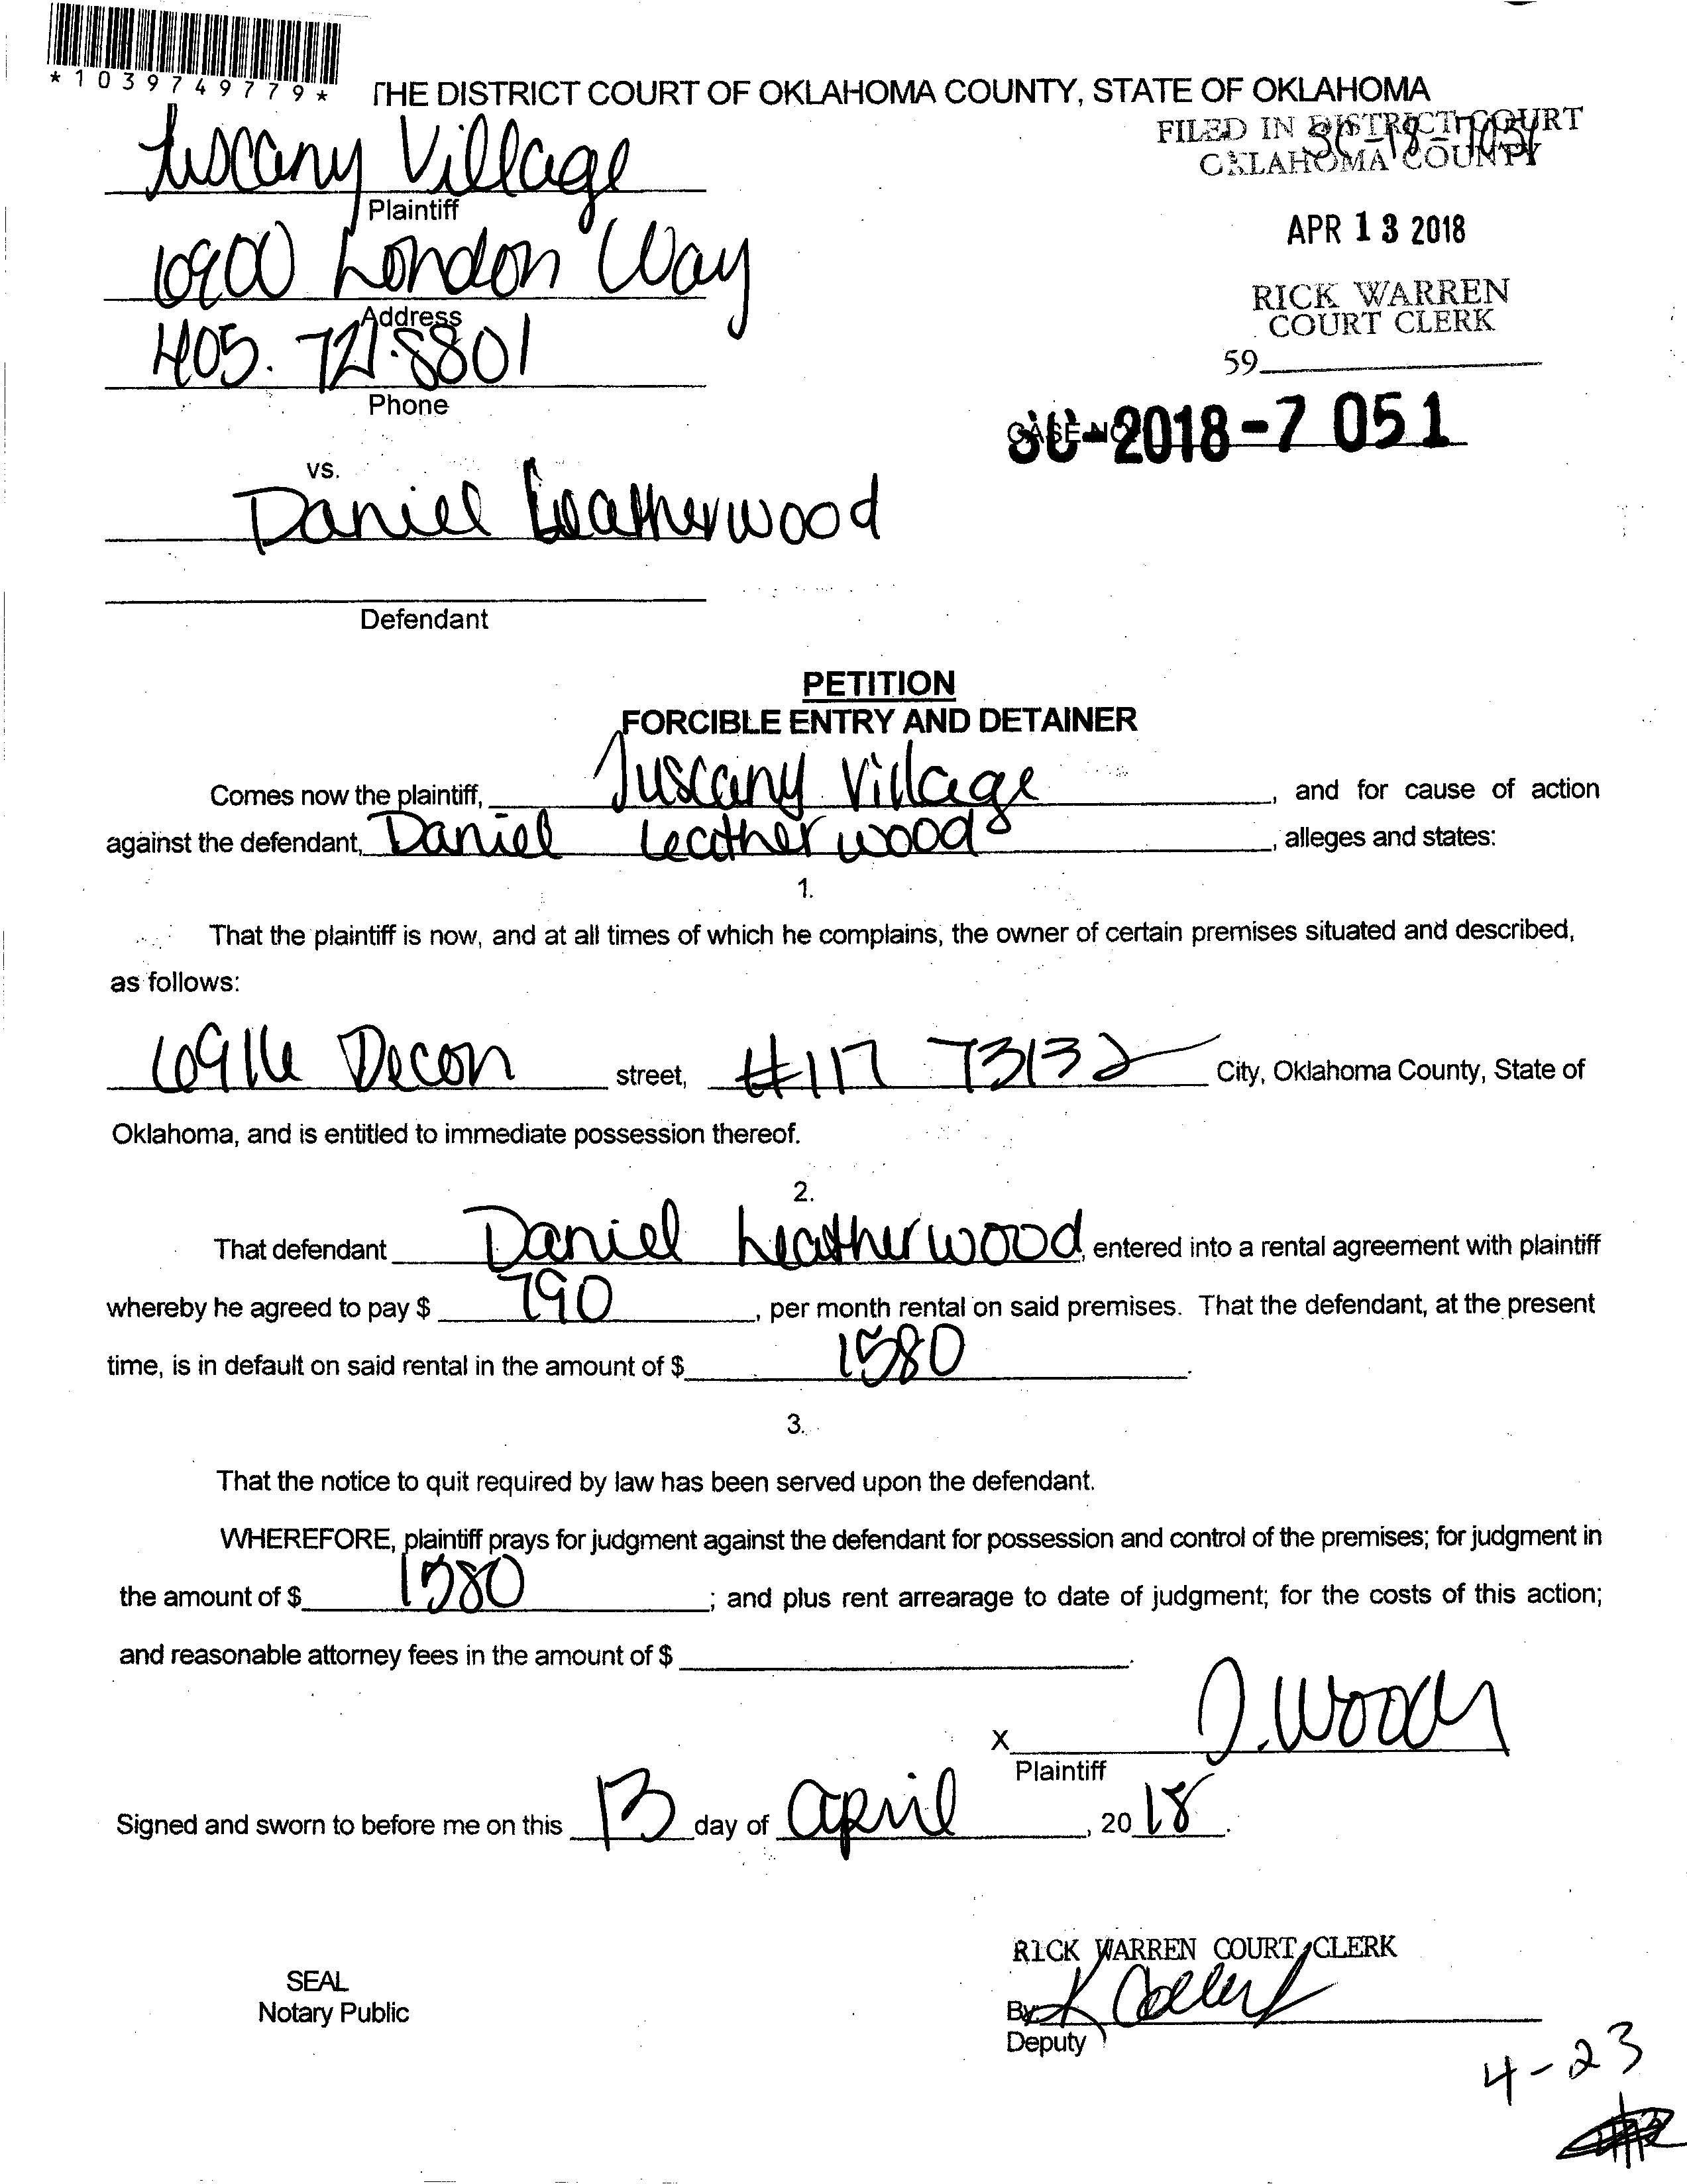 *1039749779*
THE DISTRICT COURT OF OKLAHOMA COUNTY, STATE OF OKLAHOMA
FILED IN DISTRICT COURT
OKLAHOMA COUNTY
SC-18-7051
Tuscany Village
Plaintiff
APR 13 2018
6900 London Way
Address
RICK WARREN
COURT CLERK
405. 721.8801
Phone
59
CASE NO.
SC-2018-7051
vs.
Daniel Leatherwood
Defendant
PETITION
FORCIBLE ENTRY AND DETAINER
Comes now the plaintiff, Tuscany Village, and for cause of action
against the defendant, Daniel Leatherwood, alleges and states:
1.
That the plaintiff is now, and at all times of which he complains, the owner of certain premises situated and described,
as follows:
6916 Decon street, #117 73132 City, Oklahoma County, State of
Oklahoma, and is entitled to immediate possession thereof.
2.
That defendant Daniel Leatherwood, entered into a rental agreement with plaintiff
whereby he agreed to pay $ 790, per month rental on said premises. That the defendant, at the present
time, is in default on said rental in the amount of $ 1580.
3.
That the notice to quit required by law has been served upon the defendant.
WHEREFORE, plaintiff prays for judgment against the defendant for possession and control of the premises; for judgment in
the amount of $ 1580; and plus rent arrearage to date of judgment; for the costs of this action;
and reasonable attorney fees in the amount of $ .
X J. Woody
Plaintiff
Signed and sworn to before me on this 13 day of april, 2018.
RICK WARREN COURT CLERK
SEAL
Notary Public
By: K
Deputy
4-23